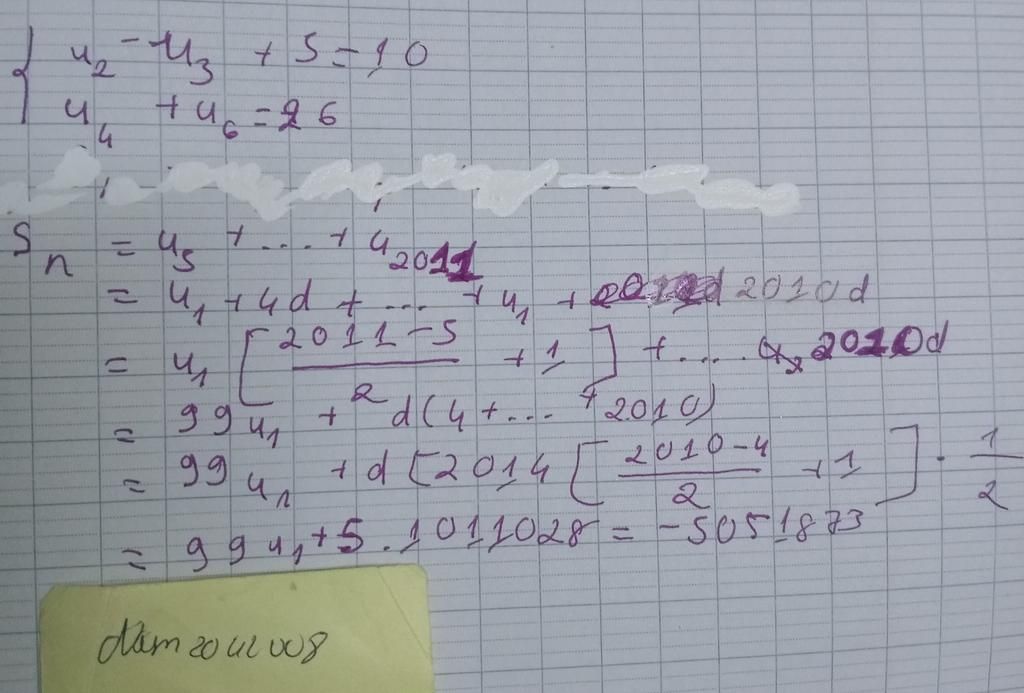 u₂ - u₃ + 5 = 10
u₄ + u₆ = 26
Sₙ = u₅ + ... + u₂₀₁₁
= u₁ + 4d + ... + u₁ + 2010d
= u₁ [ (2011 - 5)/2 + 1 ] + .... 2010d
= 99u₁ + d(4 + ... + 2010)
= 99u₁ + d [2014 [ (2010 - 4)/2 + 1 ] . 1/2
= 99u₁ + 5 . 1011028 = -5051873